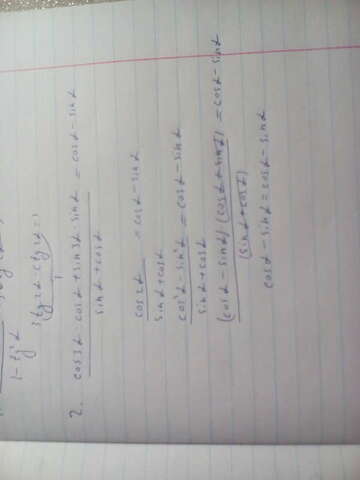 1 - tg²α
3(tg2α · ctg2α = 3
2. (cos3α · cosα + sin3α · sinα) / (sinα + cosα) = cosα - sinα
cos2α / (sinα + cosα) = cosα - sinα
(cos²α - sin²α) / (sinα + cosα) = cosα - sinα
(cosα - sinα)(cosα + sinα) / (sinα + cosα) = cosα - sinα
cosα - sinα = cosα - sinα